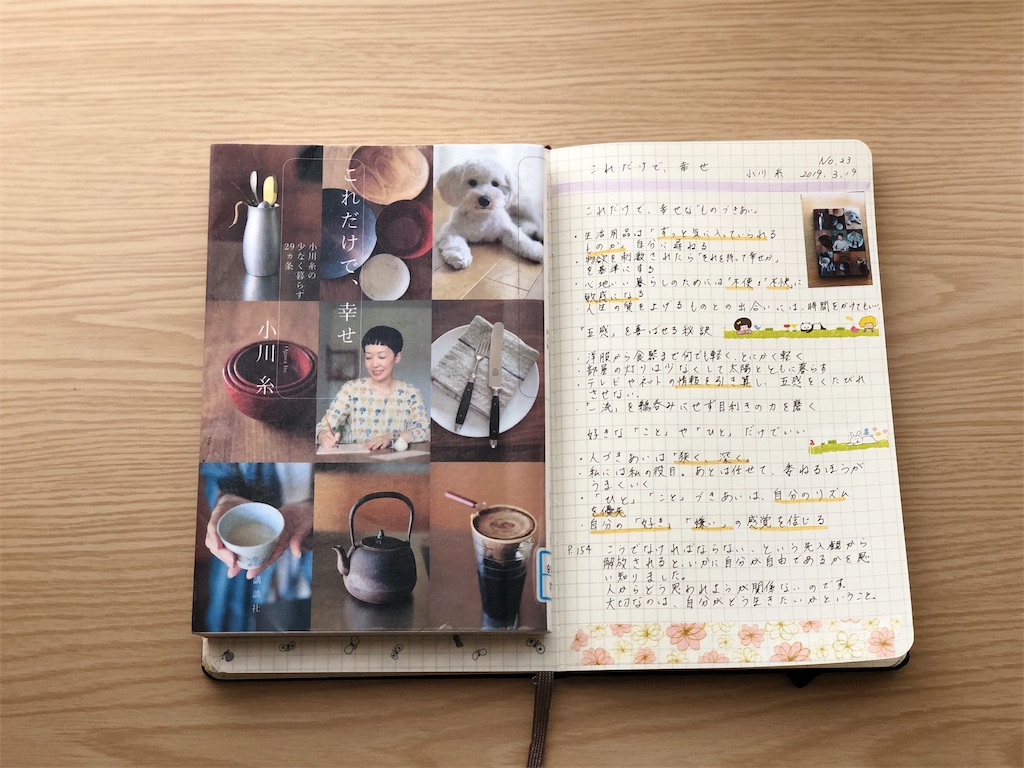 これだけで、幸せ
小川糸の
少なく暮らす
29ヵ条
小川 糸
Ogawa Ito
講談社
No.23
これだけで、幸せ
小川 糸 2019.3.19
これだけで、幸せな「ものづきあい」
・生活用品は「ずっと気に入っていられる
ものか」自分に尋ねる
・物欲を刺激されたら「それを持って幸せか」
を基準にする
・心地いい暮らしのためには「不便」「不快」に
敏感になる
・人生の質を上げるものとの出合いには、時間をかけてもいい
「五感」を喜ばせる秘訣
・洋服から食器まで何でも軽く、とにかく軽く
・部屋の灯りは少なくして太陽とともに暮らす
・テレビやネットの情報を引き算し、五感をくたびれ
させない。
・「一流」を鵜呑みにせず目利きの力を磨く
好きな「こと」や「ひと」だけでいい
・人づきあいは「狭く、深く」
・私には私の役目。あとは任せて、委ねるほうが
うまくいく
・「ひと」「こと」づきあいは、自分のリズム
を優先
・自分の「好き」「嫌い」の感覚を信じる
P.154 こうでなければならない、という先入観から
解放されると、いかに自分が自由であるかを思
い知りました。
人からどう思われようが関係ないのです。
大切なのは、自分がどう生きたいかということ。